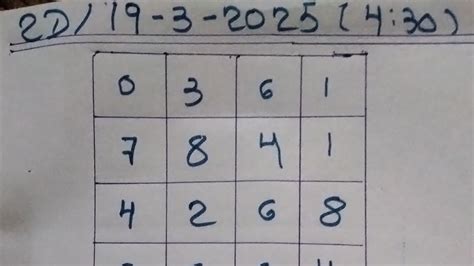 2D/ 19-3-2025 (4:30)
0 3 6 1
7 8 4 1
4 2 6 8